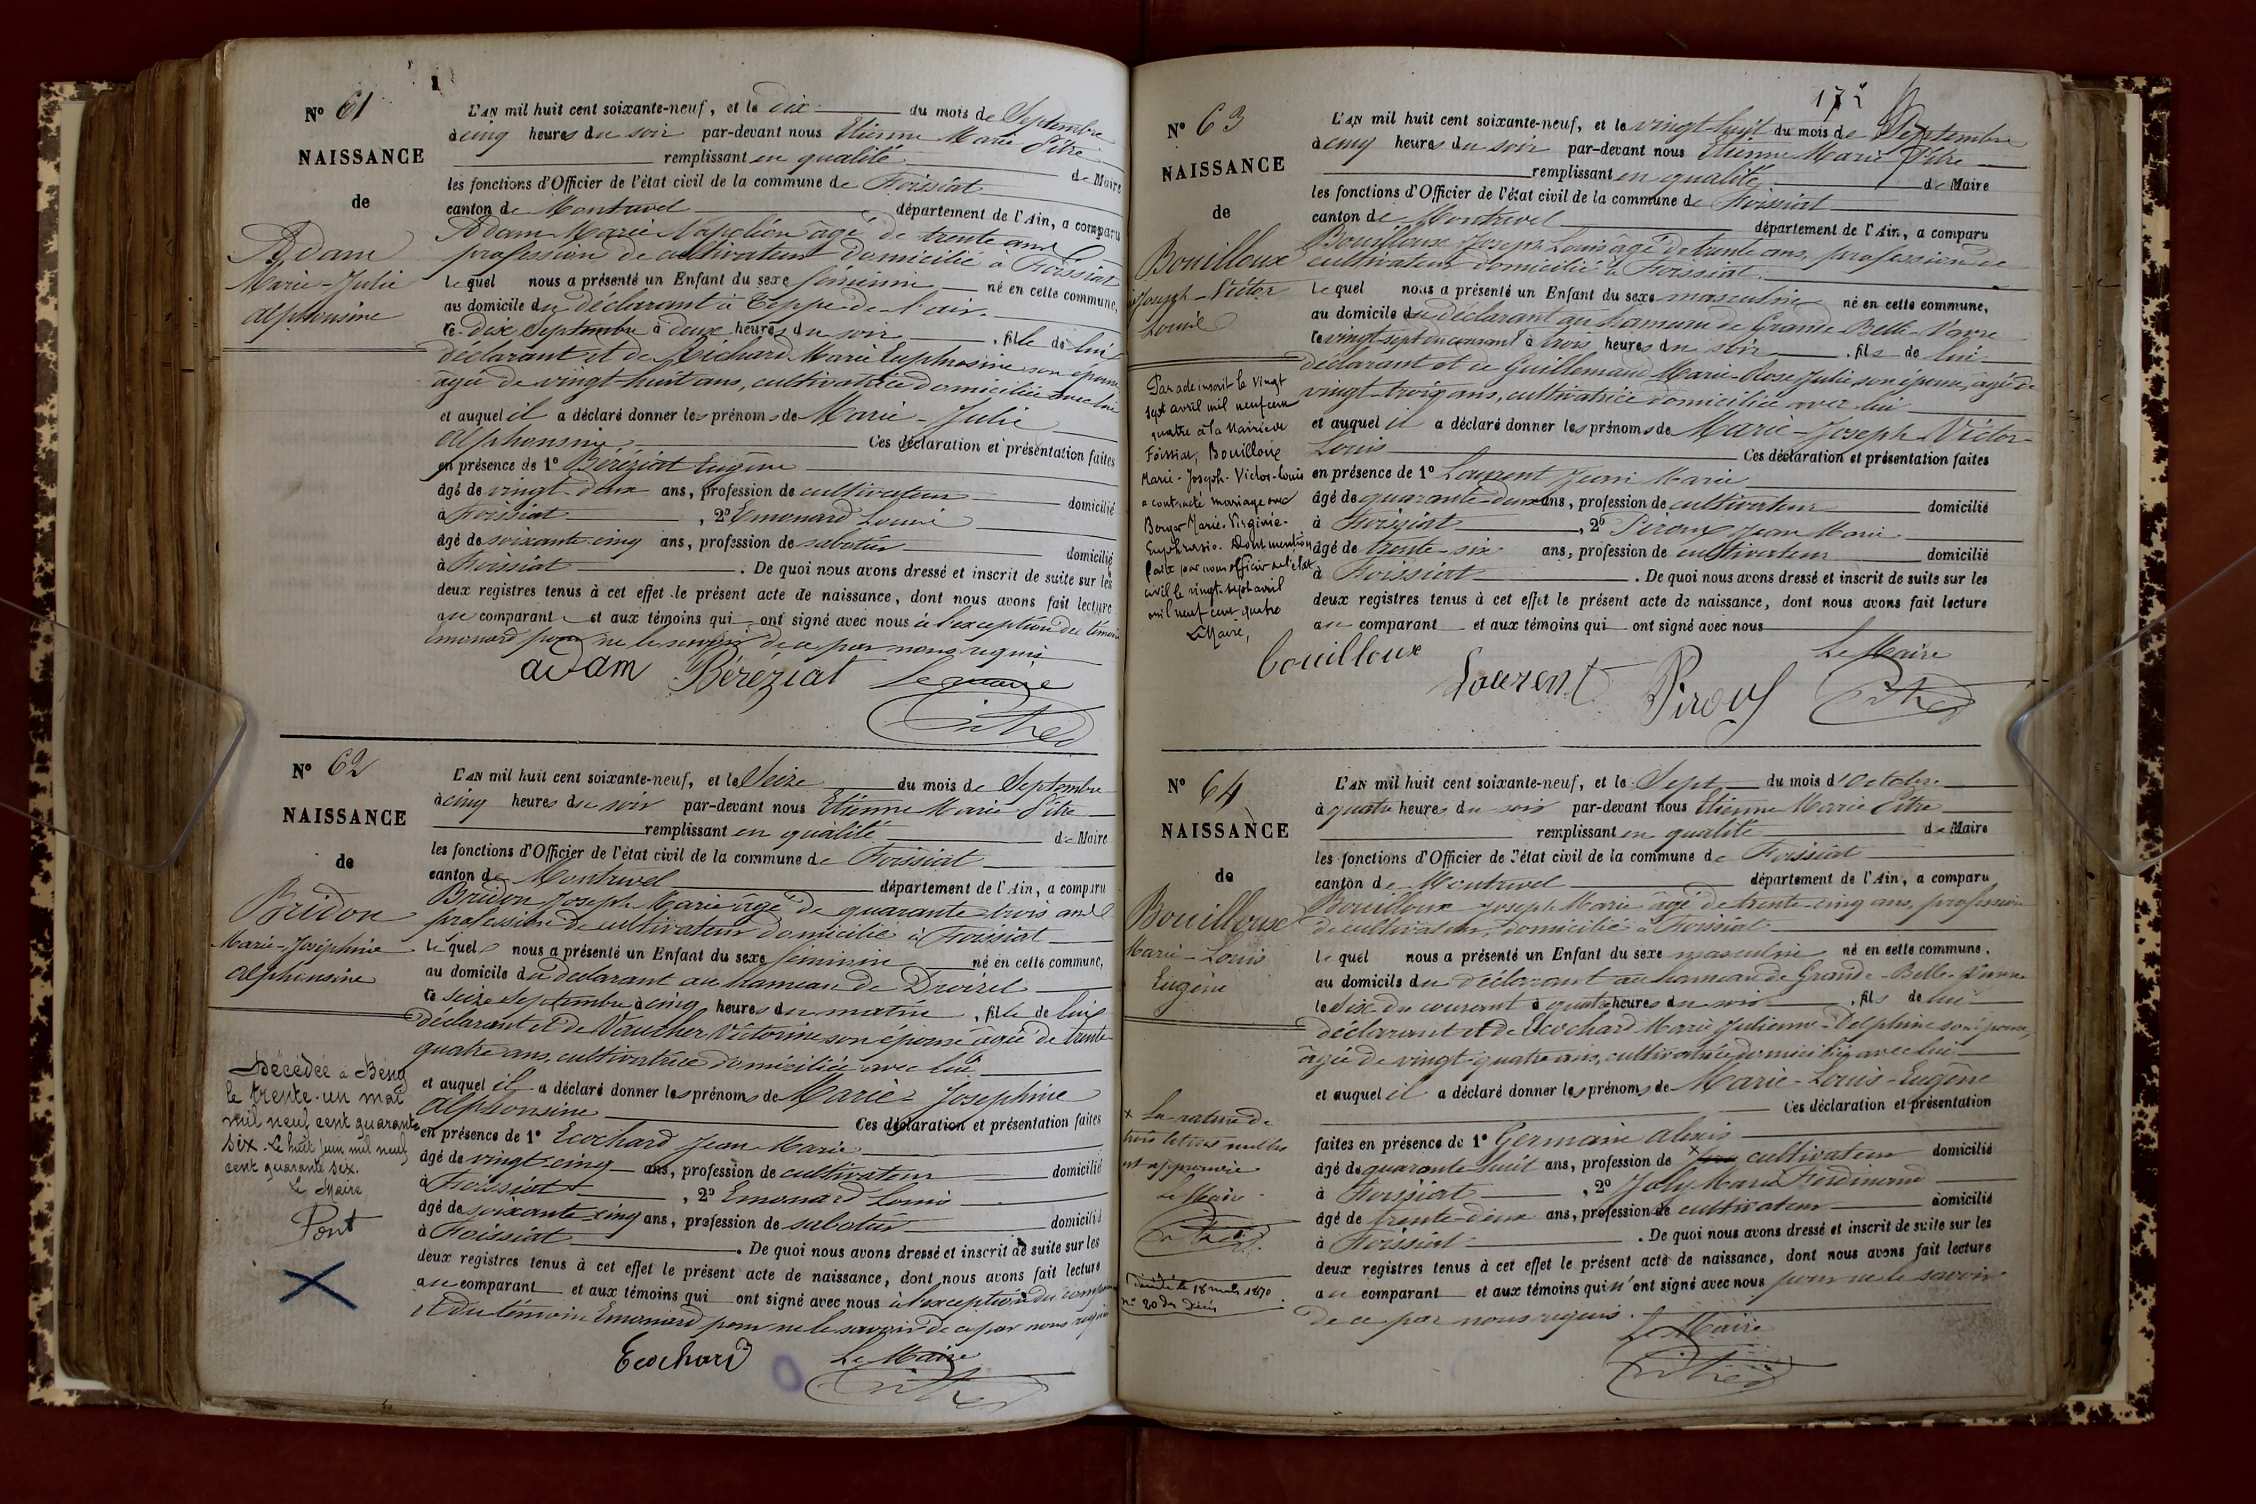 N° 61
NAISSANCE
de
Adam
Marie-Julie
alphonsine
L'AN mil huit cent soixante-neuf, et le dix du mois de Septembre
à cinq heures du soir par-devant nous Etienne Marie Pitre
remplissant en qualité de Maire
les fonctions d'Officier de l'état civil de la commune de Foissiat
canton de Montrevel département de l'Ain, a comparu
Adam Marie Napoléon âgé de trente ans
profession de cultivateur domicilié à Foissiat
lequel nous a présenté un Enfant du sexe féminin né en cette commune,
au domicile du déclarant à Teppe de l'air
le dix Septembre à deux heures du soir, fille de lui
déclarant et de Richard Marie Euphrosine son épouse
âgée de vingt-huit ans, cultivatrice domiciliée avec lui
et auquel il a déclaré donner les prénoms de Marie-Julie
alphonsine Ces déclaration et présentation faites
en présence de 1° Béréziat Eugène
âgé de vingt-deux ans, profession de cultivateur domicilié
à Foissiat, 2° Emonard Louis
âgé de soixante-cinq ans, profession de sabotier domicilié
à Foissiat. De quoi nous avons dressé et inscrit de suite sur les
deux registres tenus à cet effet le présent acte de naissance, dont nous avons fait lecture
au comparant et aux témoins qui ont signé avec nous à l'exception du témoin
Emonard pour ne le savoir de ce par nous requis
adam Béréziat Le maire
Pitre
N° 62
NAISSANCE
de
Bridon
Marie-Joséphine
alphonsine
Décédée à Bény
le trente-un mai
mil neuf cent quarante
six. Le huit juin mil neuf
cent quarante six.
Le Maire
Pont
L'AN mil huit cent soixante-neuf, et le Seize du mois de Septembre
à cinq heures du soir par-devant nous Etienne Marie Pitre
remplissant en qualité de Maire
les fonctions d'Officier de l'état civil de la commune de Foissiat
canton de Montrevel département de l'Ain, a comparu
Bridon Joseph Marie âgé de quarante trois ans
profession de cultivateur domicilié à Foissiat
lequel nous a présenté un Enfant du sexe féminin né en cette commune,
au domicile du déclarant au hameau de
le seize Septembre à cinq heures du matin, fille de lui
déclarant et de Vaucher Victorine son épouse âgée de trente
quatre ans, cultivatrice domiciliée avec lui
et auquel il a déclaré donner les prénoms de Marie-Josephine
alphonsine Ces déclaration et présentation faites
en présence de 1° Ecochard Jean Marie
âgé de vingt-cinq ans, profession de cultivateur domicilié
à Foissiat, 2° Emonard Louis
âgé de soixante-cinq ans, profession de sabotier domicilié
à Foissiat. De quoi nous avons dressé et inscrit de suite sur les
deux registres tenus à cet effet le présent acte de naissance, dont nous avons fait lecture
au comparant et aux témoins qui ont signé avec nous à l'exception du comparant
et du témoin Emonard pour ne le savoir de ce par nous requis
Ecochard Le Maire
Pitre
172
N° 63
NAISSANCE
de
Bouilloux
Joseph-Victor
Louis
Par acte inscrit le vingt
sept avril mil neuf cent
quatre à la Mairie de
Foissiat, Bouilloux
Marie-Joseph-Victor-Louis
a contracté mariage avec
Marie-Virginie-
Dont mention
faite par nous officier de l'état
civil le vingt-sept avril
mil neuf cent quatre
Le Maire,
L'AN mil huit cent soixante-neuf, et le vingt-huit du mois de Septembre
à cinq heures du soir par-devant nous Etienne Marie Pitre
remplissant en qualité de Maire
les fonctions d'Officier de l'état civil de la commune de Foissiat
canton de Montrevel département de l'Ain, a comparu
Bouilloux Joseph Louis âgé de trente ans, profession de
cultivateur domicilié à Foissiat
lequel nous a présenté un Enfant du sexe masculin né en cette commune,
au domicile du déclarant au hameau de Grande Belle-Vavre
le vingt-sept du courant à trois heures du soir, fils de lui
déclarant et de Guillemaud Marie-Rose Julie son épouse, âgée de
vingt-trois ans, cultivatrice domiciliée avec lui
et auquel il a déclaré donner les prénoms de Marie-Joseph-Victor-
Louis Ces déclaration et présentation faites
en présence de 1° Laurent Jean Marie
âgé de quarante-deux ans, profession de cultivateur domicilié
à Foissiat, 2° Piroux Jean Marie
âgé de trente-six ans, profession de cultivateur domicilié
à Foissiat. De quoi nous avons dressé et inscrit de suite sur les
deux registres tenus à cet effet le présent acte de naissance, dont nous avons fait lecture
au comparant et aux témoins qui ont signé avec nous
Le Maire
bouilloux Laurent Piroux Pitre
N° 64
NAISSANCE
de
Bouilloux
Marie-Louis
Eugène
x La rature de
trois lettres nulles
est approuvée
Le Maire
Pitre
Décédé le 18 mars 1870
n° 20 des Décès
L'AN mil huit cent soixante-neuf, et le Sept du mois d'Octobre
à quatre heures du soir par-devant nous Etienne Marie Pitre
remplissant en qualité de Maire
les fonctions d'Officier de l'état civil de la commune de Foissiat
canton de Montrevel département de l'Ain, a comparu
Bouilloux Joseph Marie âgé de trente-cinq ans, profession
de cultivateur, domicilié à Foissiat
lequel nous a présenté un Enfant du sexe masculin né en cette commune,
au domicile du déclarant au hameau de Grande-Belle-Vavre
le six du courant à quatre heures du soir, fils de lui
déclarant et de Ecochard Marie Julienne-Delphine son épouse,
âgée de vingt-quatre ans, cultivatrice domiciliée avec lui
et auquel il a déclaré donner les prénoms de Marie-Louis-Eugène
Ces déclaration et présentation
faites en présence de 1° Germain alexis
âgé de quarante-huit ans, profession de x cultivateur domicilié
à Foissiat, 2° Joly Marie Ferdinand
âgé de trente-deux ans, profession de cultivateur domicilié
à Foissiat. De quoi nous avons dressé et inscrit de suite sur les
deux registres tenus à cet effet le présent acte de naissance, dont nous avons fait lecture
au comparant et aux témoins qui n'ont signé avec nous pour ne le savoir
de ce par nous requis.
Le Maire
Pitre